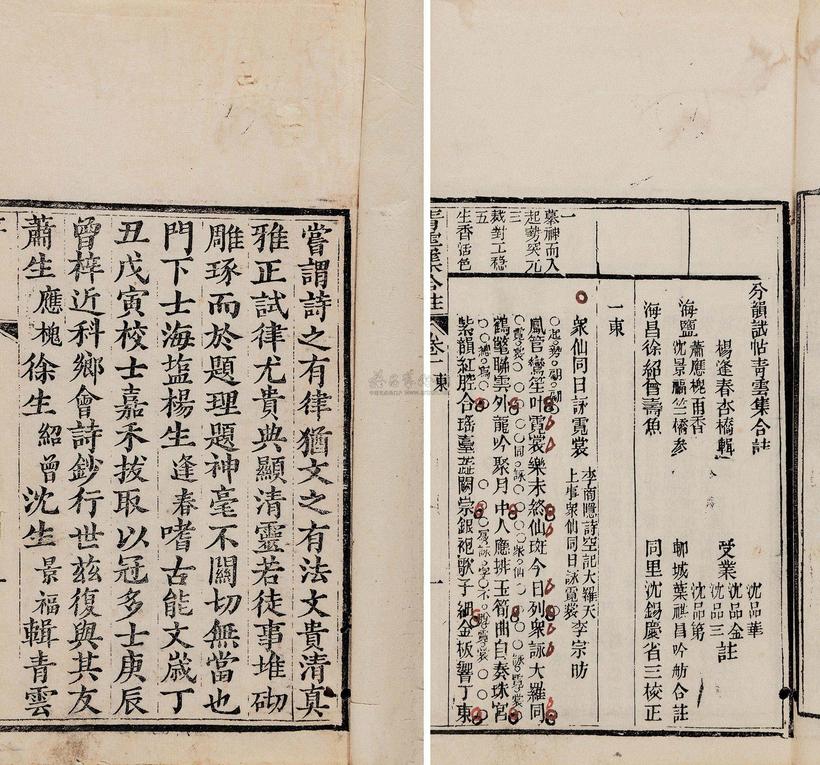 嘗謂詩之有律猶文之有法文貴清真
雅正試律尤貴典顯清靈若徒事堆砌
雕琢而於題理題神毫不關切無當也
門下士海塩楊生逢春嗜古能文歲丁
丑戊寅校士嘉禾拔取以冠多士庚辰
曾梓近科鄉會詩鈔行世茲復與其友
蕭生應槐徐生紹曾沈生景福輯青雲
分韻試帖青雲集合註
楊逢春杏橋輯
蕭應槐雨香
海鹽
沈景福竺橋参
海昌徐紹曾壽魚
沈品華
沈品金
受業 註
沈品三
沈品第
郇城葉祺昌吟舫合註
同里沈錫慶省三校正
一東
衆仙同日詠霓裳
李商隱詩空記大羅天
上事衆仙同日詠霓裳
李宗昉
鳳管鸞笙叶霓裳樂未終仙班今日列衆詠大羅同
鶴氅聯雲外龍吟聚月中人廳排玉筍曲自奏珠宮
紫韻紅腔合瑶臺蕊闕崇銀袍歌子細金板響丁東
一
摹神而入
起勢突兀
三
裁對工穩
五
生香活色
青雲集合註
卷一
東
一